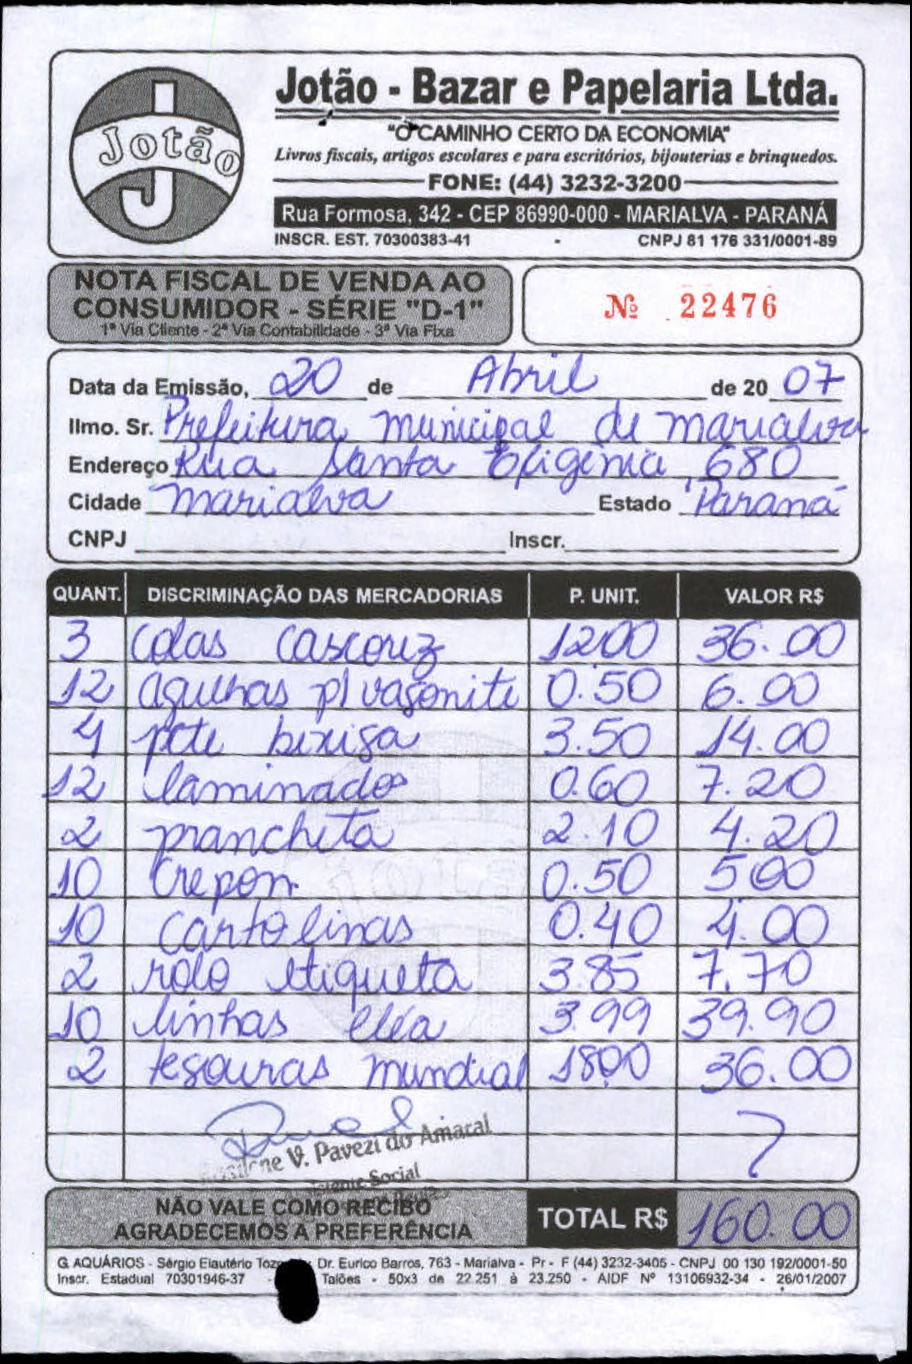 Jotão
Jotão - Bazar e Papelaria Ltda.
"O CAMINHO CERTO DA ECONOMIA"
Livros fiscais, artigos escolares e para escritórios, bijouterias e brinquedos.
FONE: (44) 3232-3200
Rua Formosa, 342 - CEP 86990-000 - MARIALVA - PARANÁ
INSCR. EST. 70300383-41 - CNPJ 81 176 331/0001-89
NOTA FISCAL DE VENDA AO
CONSUMIDOR - SÉRIE "D-1"
1ª Via Cliente - 2ª Via Contabilidade - 3ª Via Fixa
Nº 22476
Data da Emissão, 20 de Abril de 20 07
Ilmo. Sr. Prefeitura municipal de marialva
Endereço Rua Santa Efigênia, 680
Cidade marialva Estado Paraná
CNPJ Inscr.
QUANT. DISCRIMINAÇÃO DAS MERCADORIAS P. UNIT. VALOR R$
3 colas cascorez 1200 36.00
12 agulhas p/ vagonite 0.50 6.00
4 pcte bixiga 3.50 14.00
12 laminado 0.60 7.20
2 prancheta 2.10 4.20
10 crepom 0.50 5 00
10 cartolinas 0.40 4.00
2 rolo etiqueta 3.85 7.70
10 linhas cléa 3.99 39.90
2 tesouras mundial 1800 36.00
V. Pavezi do Amaral
Social
NÃO VALE COMO RECIBO
AGRADECEMOS A PREFERÊNCIA
TOTAL R$ 160.00
G. AQUÁRIOS - Sérgio Elautério Dr. Eurico Barros, 763 - Marialva - Pr - F (44) 3232-3405 - CNPJ 00 130 192/0001-50
Inscr. Estadual 70301946-37 - Talões - 50x3 de 22.251 à 23.250 - AIDF Nº 13106932-34 - 26/01/2007